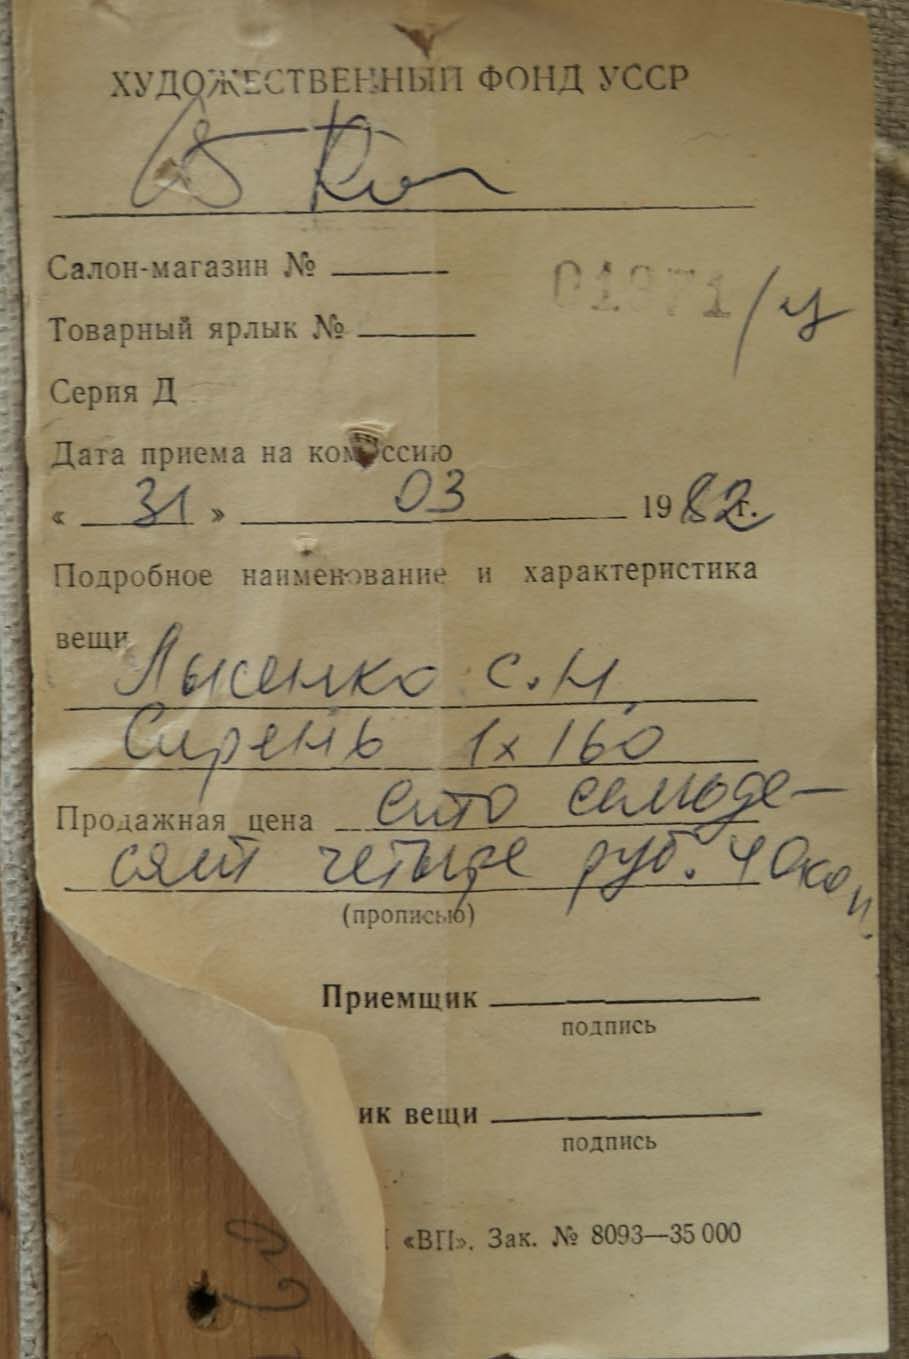 ХУДОЖЕСТВЕННЫЙ ФОНД УССР
Салон-магазин №
Товарный ярлык №
01371/у
Серия Д
Дата приема на комиссию
« 31 » 03 1982 г.
Подробное наименование и характеристика
вещи
Лысенко С.Н.
Сирень 1х160
Продажная цена сто семьде-
сят четыре руб. 40 коп.
(прописью)
Приемщик
подпись
ик вещи
подпись
«ВП». Зак. № 8093—35 000